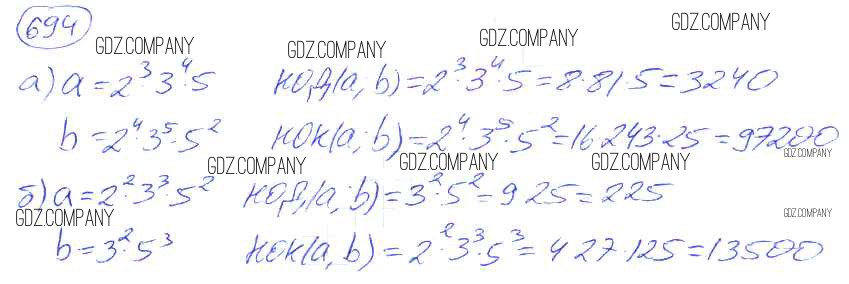 694
GDZ.COMPANY GDZ.COMPANY GDZ.COMPANY GDZ.COMPANY
а) a = 2³·3⁴·5 НОД(a; b) = 2³·3⁴·5 = 8·81·5 = 3240
b = 2⁴·3⁵·5² НОК(a; b) = 2⁴·3⁵·5² = 16·243·25 = 97200
GDZ.COMPANY GDZ.COMPANY GDZ.COMPANY GDZ.COMPANY
б) a = 2²·3³·5² НОД(a; b) = 3²·5² = 9·25 = 225
GDZ.COMPANY GDZ.COMPANY
b = 3²·5³ НОК(a, b) = 2²·3³·5³ = 4·27·125 = 13500